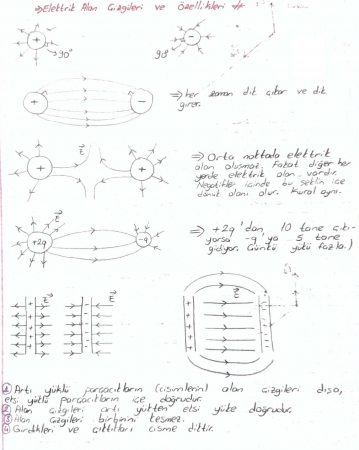 ⇒ Elektrik Alan Çizgileri ve özellikleri **
+
90°
-
90°
+
-
⇒ her zaman dik çıkar ve dik
girer.
E
+
+
⇒ Orta noktada elektrik
alan oluşmaz. Fakat diğer her
yerde elektrik alan vardır.
Negatifler içinde bu şeklin içe
dönük olanı olur. Kural aynı.
E
+2q
-q
⇒ +2q'dan 10 tane çıkı-
yorsa -q ya 5 tane
gidiyor. (Çünkü yükü fazla.)
E
E
E
① Artı yüklü parçacıkların (cisimlerin) alan çizgileri dışa,
eksi yüklü parçacıkların içe doğrudur.
② Alan çizgileri artı yükten eksi yüke doğrudur.
③ Alan çizgileri birbirini kesmez.
④ Girdikleri ve çıktıkları cisme diktir.